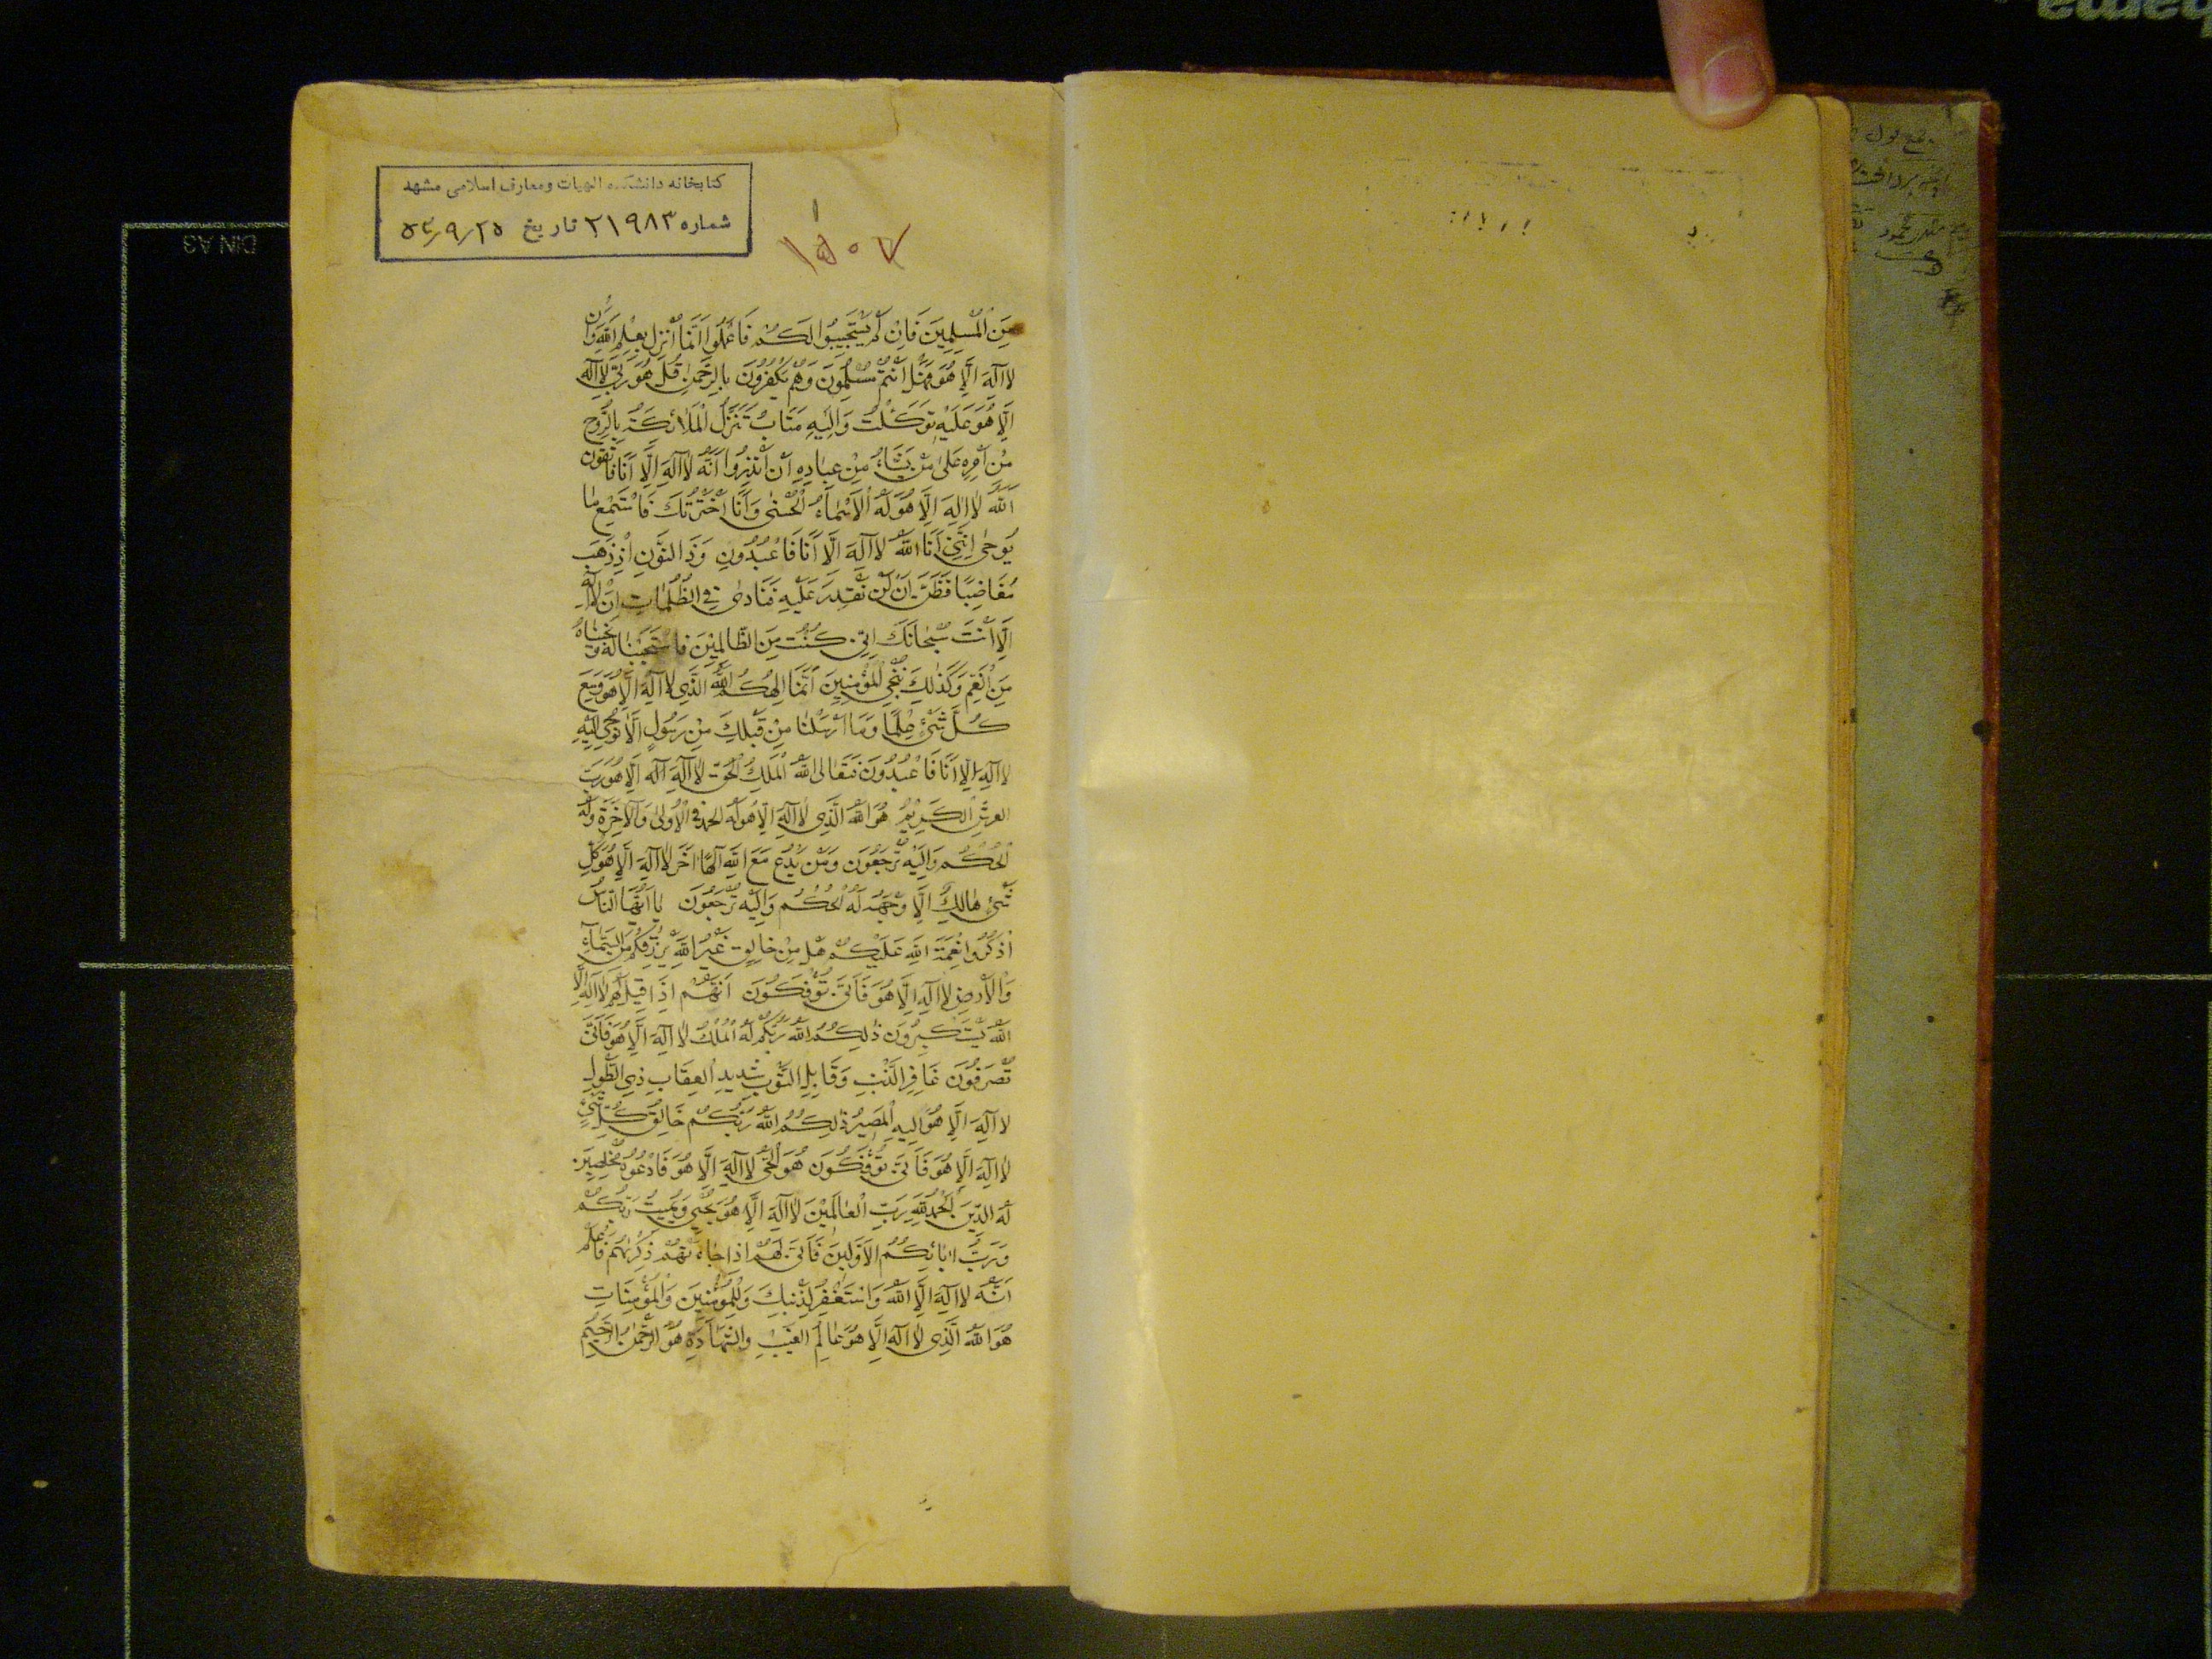 کتابخانه دانشکده الهیات ومعارف اسلامی مشهد
شماره ۲۱۹۸۳ تاریخ ۵۴/۹/۲۵
۱
۱۵۰۷
مِنَ الْمُسْلِمِينَ فَاِنْ لَمْ يَسْتَجِيبُوا لَكُمْ فَاعْلَمُوا اَنَّمَا اُنْزِلَ بِعِلْمِ اللّٰهِ وَاَنْ
لا اِلٰهَ اِلَّا هُوَ فَهَلْ اَنْتُمْ مُسْلِمُونَ وَهُمْ يَكْفُرُونَ بِالرَّحْمٰنِ قُلْ هُوَ رَبِّى لا اِلٰهَ
اِلَّا هُوَ عَلَيْهِ تَوَكَّلْتُ وَاِلَيْهِ مَتَابِ تَنَزَّلُ الْمَلٰائِكَةُ بِالرُّوحِ
مِنْ اَمْرِهِ عَلىٰ مَنْ يَشَاءُ مِنْ عِبٰادِهِ اَنْ اَنْذِرُوا اَنَّهُ لا اِلٰهَ اِلَّا اَنَا فَاتَّقُونِ
اَللّٰهُ لا اِلٰهَ اِلَّا هُوَ لَهُ الْاَسْمَاءُ الْحُسْنىٰ وَاَنَا اخْتَرْتُكَ فَاسْتَمِعْ لِمٰا
يُوحىٰ اِنَّنِى اَنَا اللّٰهُ لا اِلٰهَ اِلَّا اَنَا فَاعْبُدُونِ وَذَا النُّونِ اِذْ ذَهَبَ
مُغَاضِبًا فَظَنَّ اَنْ لَنْ نَقْدِرَ عَلَيْهِ فَنَادىٰ فِى الظُّلُمٰاتِ اَنْ لا اِلٰهَ
اِلَّا اَنْتَ سُبْحٰانَكَ اِنِّى كُنْتُ مِنَ الظّٰالِمِينَ فَاسْتَجَبْنٰا لَهُ وَنَجَّيْنٰاهُ
مِنَ الْغَمِّ وَكَذٰلِكَ نُنْجِى الْمُؤْمِنِينَ اِنَّمَا اِلٰهُكُمُ اللّٰهُ الَّذِى لا اِلٰهَ اِلَّا هُوَ وَسِعَ
كُلَّ شَىْءٍ عِلْمًا وَمَا اَرْسَلْنٰا مِنْ قَبْلِكَ مِنْ رَسُولٍ اِلَّا نُوحِى اِلَيْهِ
لا اِلٰهَ اِلَّا اَنَا فَاعْبُدُونَ فَتَعٰالَى اللّٰهُ الْمَلِكُ الْحَقُّ لا اِلٰهَ اِلٰه اِلَّا هُوَ رَبُّ
الْعَرْشِ الْكَرِيمُ هُوَ اللّٰهُ الَّذِى لا اِلٰهَ اِلَّا هُوَ لَهُ الْحَمْدُ فِى الْاُولىٰ وَالْآخِرَةِ وَلَهُ
الْحُكْمُ وَاِلَيْهِ تُرْجَعُونَ وَمَنْ يَدْعُ مَعَ اللّٰهِ اِلٰهًا اٰخَرَ لا اِلٰهَ اِلَّا هُوَ كُلُّ
شَىْءٍ هٰالِكٌ اِلَّا وَجْهَهُ لَهُ الْحُكْمُ وَاِلَيْهِ تُرْجَعُونَ يٰا اَيُّهَا النّٰاسُ
اذْكُرُوا نِعْمَتَ اللّٰهِ عَلَيْكُمْ هَلْ مِنْ خٰالِقٍ غَيْرُ اللّٰهِ يَرْزُقُكُمْ مِنَ السَّمٰاءِ
وَالْاَرْضِ لا اِلٰهَ اِلَّا هُوَ فَاَنّىٰ تُؤْفَكُونَ اِنَّهُمْ اِذَا قِيلَ لَهُمْ لا اِلٰهَ اِلَّا
اللّٰهُ يَسْتَكْبِرُونَ ذٰلِكُمُ اللّٰهُ رَبُّكُمْ لَهُ الْمُلْكُ لا اِلٰهَ اِلَّا هُوَ فَاَنّىٰ
تُصْرَفُونَ غَافِرِ الذَّنْبِ وَقَابِلِ التَّوْبِ شَدِيدِ الْعِقَابِ ذِى الطَّوْلِ
لا اِلٰهَ اِلَّا هُوَ اِلَيْهِ الْمَصِيرُ ذٰلِكُمُ اللّٰهُ رَبُّكُمْ خَالِقُ كُلِّ شَىْءٍ
لا اِلٰهَ اِلَّا هُوَ فَاَنّىٰ تُؤْفَكُونَ هُوَ الْحَىُّ لا اِلٰهَ اِلَّا هُوَ فَادْعُوهُ مُخْلِصِينَ
لَهُ الدِّينَ الْحَمْدُ لِلّٰهِ رَبِّ الْعٰالَمِينَ لا اِلٰهَ اِلَّا هُوَ يُحْيِى وَيُمِيتُ رَبُّكُمْ
وَرَبُّ اٰبٰائِكُمُ الْاَوَّلِينَ فَاَنّىٰ لَهُمْ اِذَا جٰاءَتْهُمْ ذِكْرٰيهُمْ فَاعْلَمْ
اَنَّهُ لا اِلٰهَ اِلَّا اللّٰهُ وَاسْتَغْفِرْ لِذَنْبِكَ وَلِلْمُؤْمِنِينَ وَالْمُؤْمِنَاتِ
هُوَ اللّٰهُ الَّذِى لا اِلٰهَ اِلَّا هُوَ عٰالِمُ الْغَيْبِ وَالشَّهٰادَةِ هُوَ الرَّحْمٰنُ الرَّحِيمُ
DIN A3